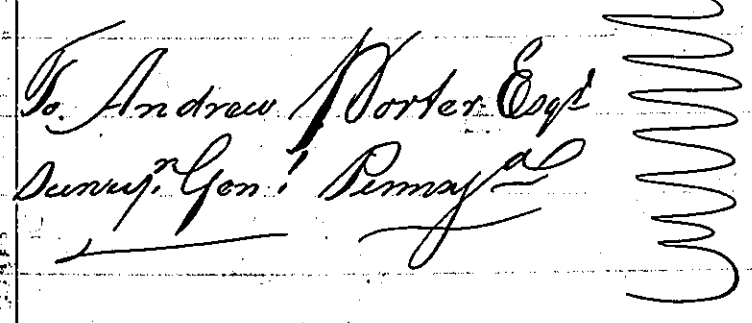 To. Andrew Porter Esqr
Survyr. Genl. Pennsya